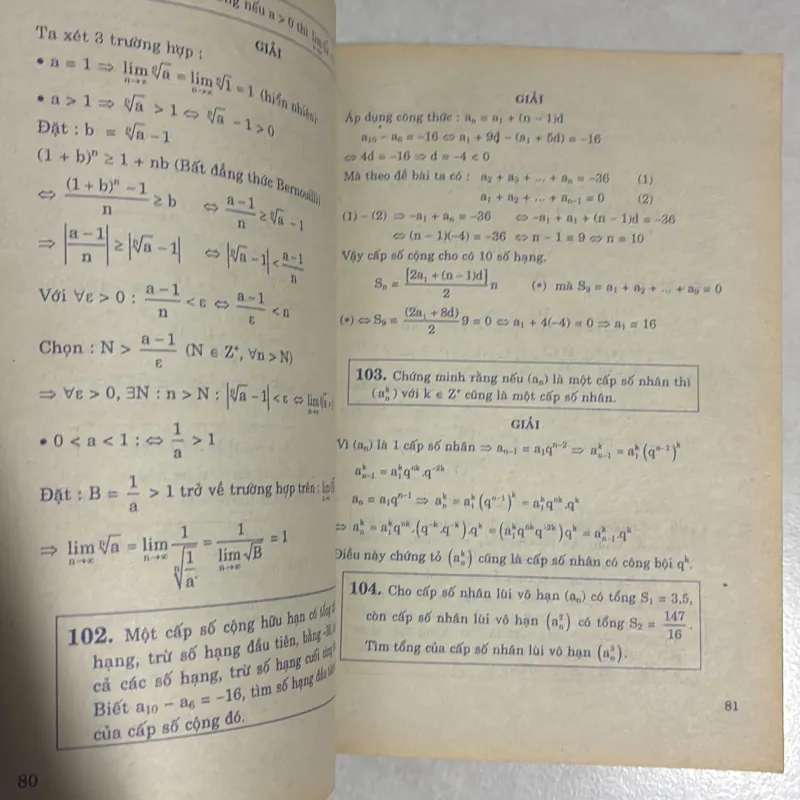 nếu a > 0 thì lim
GIẢI
Ta xét 3 trường hợp :
• a = 1 ⇒ lim ⁿ√a = lim ⁿ√1 = 1 (hiển nhiên)
n→∞ n→∞
• a > 1 ⇒ ⁿ√a > 1 ⇔ ⁿ√a − 1 > 0
Đặt : b = ⁿ√a − 1
(1 + b)ⁿ ≥ 1 + nb (Bất đẳng thức Bernouilli)
⇔ ((1 + b)ⁿ − 1)/n ≥ b ⇔ (a − 1)/n ≥ ⁿ√a − 1
⇒ |(a − 1)/n| ≥ |ⁿ√a − 1| ⇔ |ⁿ√a − 1| < (a − 1)/n
Với ∀ε > 0 : (a − 1)/n < ε ⇔ (a − 1)/ε < n
Chọn : N > (a − 1)/ε (N ∈ Z⁺, ∀n > N)
⇒ ∀ε > 0, ∃N : n > N : |ⁿ√a − 1| < ε ⇔ lim ⁿ√a
• 0 < a < 1 : ⇔ 1/a > 1
Đặt : B = 1/a > 1 trở về trường hợp trên : lim
⇒ lim ⁿ√a = lim 1/ⁿ√(1/a) = 1/lim √B = 1
n→∞ n→∞ n→∞
102. Một cấp số cộng hữu hạn có tổng
hạng, trừ số hạng đầu tiên, bằng −36,
cả các số hạng, trừ số hạng cuối cùng
Biết a₁₀ − a₆ = −16, tìm số hạng đầu
của cấp số cộng đó.
80
GIẢI
Áp dụng công thức : aₙ = a₁ + (n − 1)d
a₁₀ − a₆ = −16 ⇔ a₁ + 9d − (a₁ + 5d) = −16
⇔ 4d = −16 ⇒ d = −4 < 0
Mà theo đề bài ta có : a₂ + a₃ + ... + aₙ = −36 (1)
a₁ + a₂ + ... + aₙ₋₁ = 0 (2)
(1) − (2) ⇒ −a₁ + aₙ = −36 ⇔ −a₁ + a₁ + (n − 1)d = −36
⇔ (n − 1)(−4) = −36 ⇔ n − 1 = 9 ⇔ n = 10
Vậy cấp số cộng cho có 10 số hạng.
Sₙ = [2a₁ + (n − 1)d]/2 n (*) mà S₉ = a₁ + a₂ + ... + a₉ = 0
(*) ⇔ S₉ = (2a₁ + 8d)/2 9 = 0 ⇔ a₁ + 4(−4) = 0 ⇒ a₁ = 16
103. Chứng minh rằng nếu (aₙ) là một cấp số nhân thì
(aₙᵏ) với k ∈ Z⁺ cũng là một cấp số nhân.
GIẢI
Vì (aₙ) là 1 cấp số nhân ⇒ aₙ₋₁ = a₁qⁿ⁻² ⇒ aₙ₋₁ᵏ = a₁ᵏ(qⁿ⁻²)ᵏ
aₙ₋₁ᵏ = a₁ᵏqⁿᵏ.q⁻²ᵏ
aₙ = a₁qⁿ⁻¹ ⇒ aₙᵏ = a₁ᵏ(qⁿ⁻¹)ᵏ = a₁ᵏqⁿᵏ.qᵏ
⇒ aₙᵏ = a₁ᵏqⁿᵏ.(q⁻ᵏ.q⁻ᵏ).qᵏ = (a₁ᵏqⁿᵏq⁺²ᵏ)qᵏ = aₙ₋₁ᵏ.qᵏ
Điều này chứng tỏ (aₙᵏ) cũng là cấp số nhân có công bội qᵏ.
104. Cho cấp số nhân lùi vô hạn (aₙ) có tổng S₁ = 3,5,
còn cấp số nhân lùi vô hạn (aₙ²) có tổng S₂ = 147/16.
Tìm tổng của cấp số nhân lùi vô hạn (aₙ³).
81